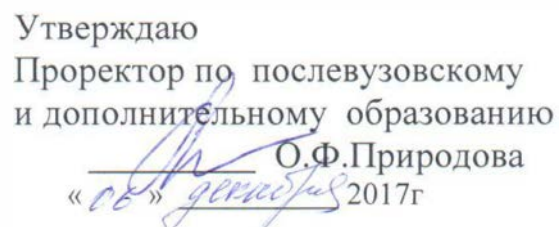 Утверждаю
Проректор по послевузовскому
и дополнительному образованию
О.Ф.Природова
« 06 » декабря 2017г